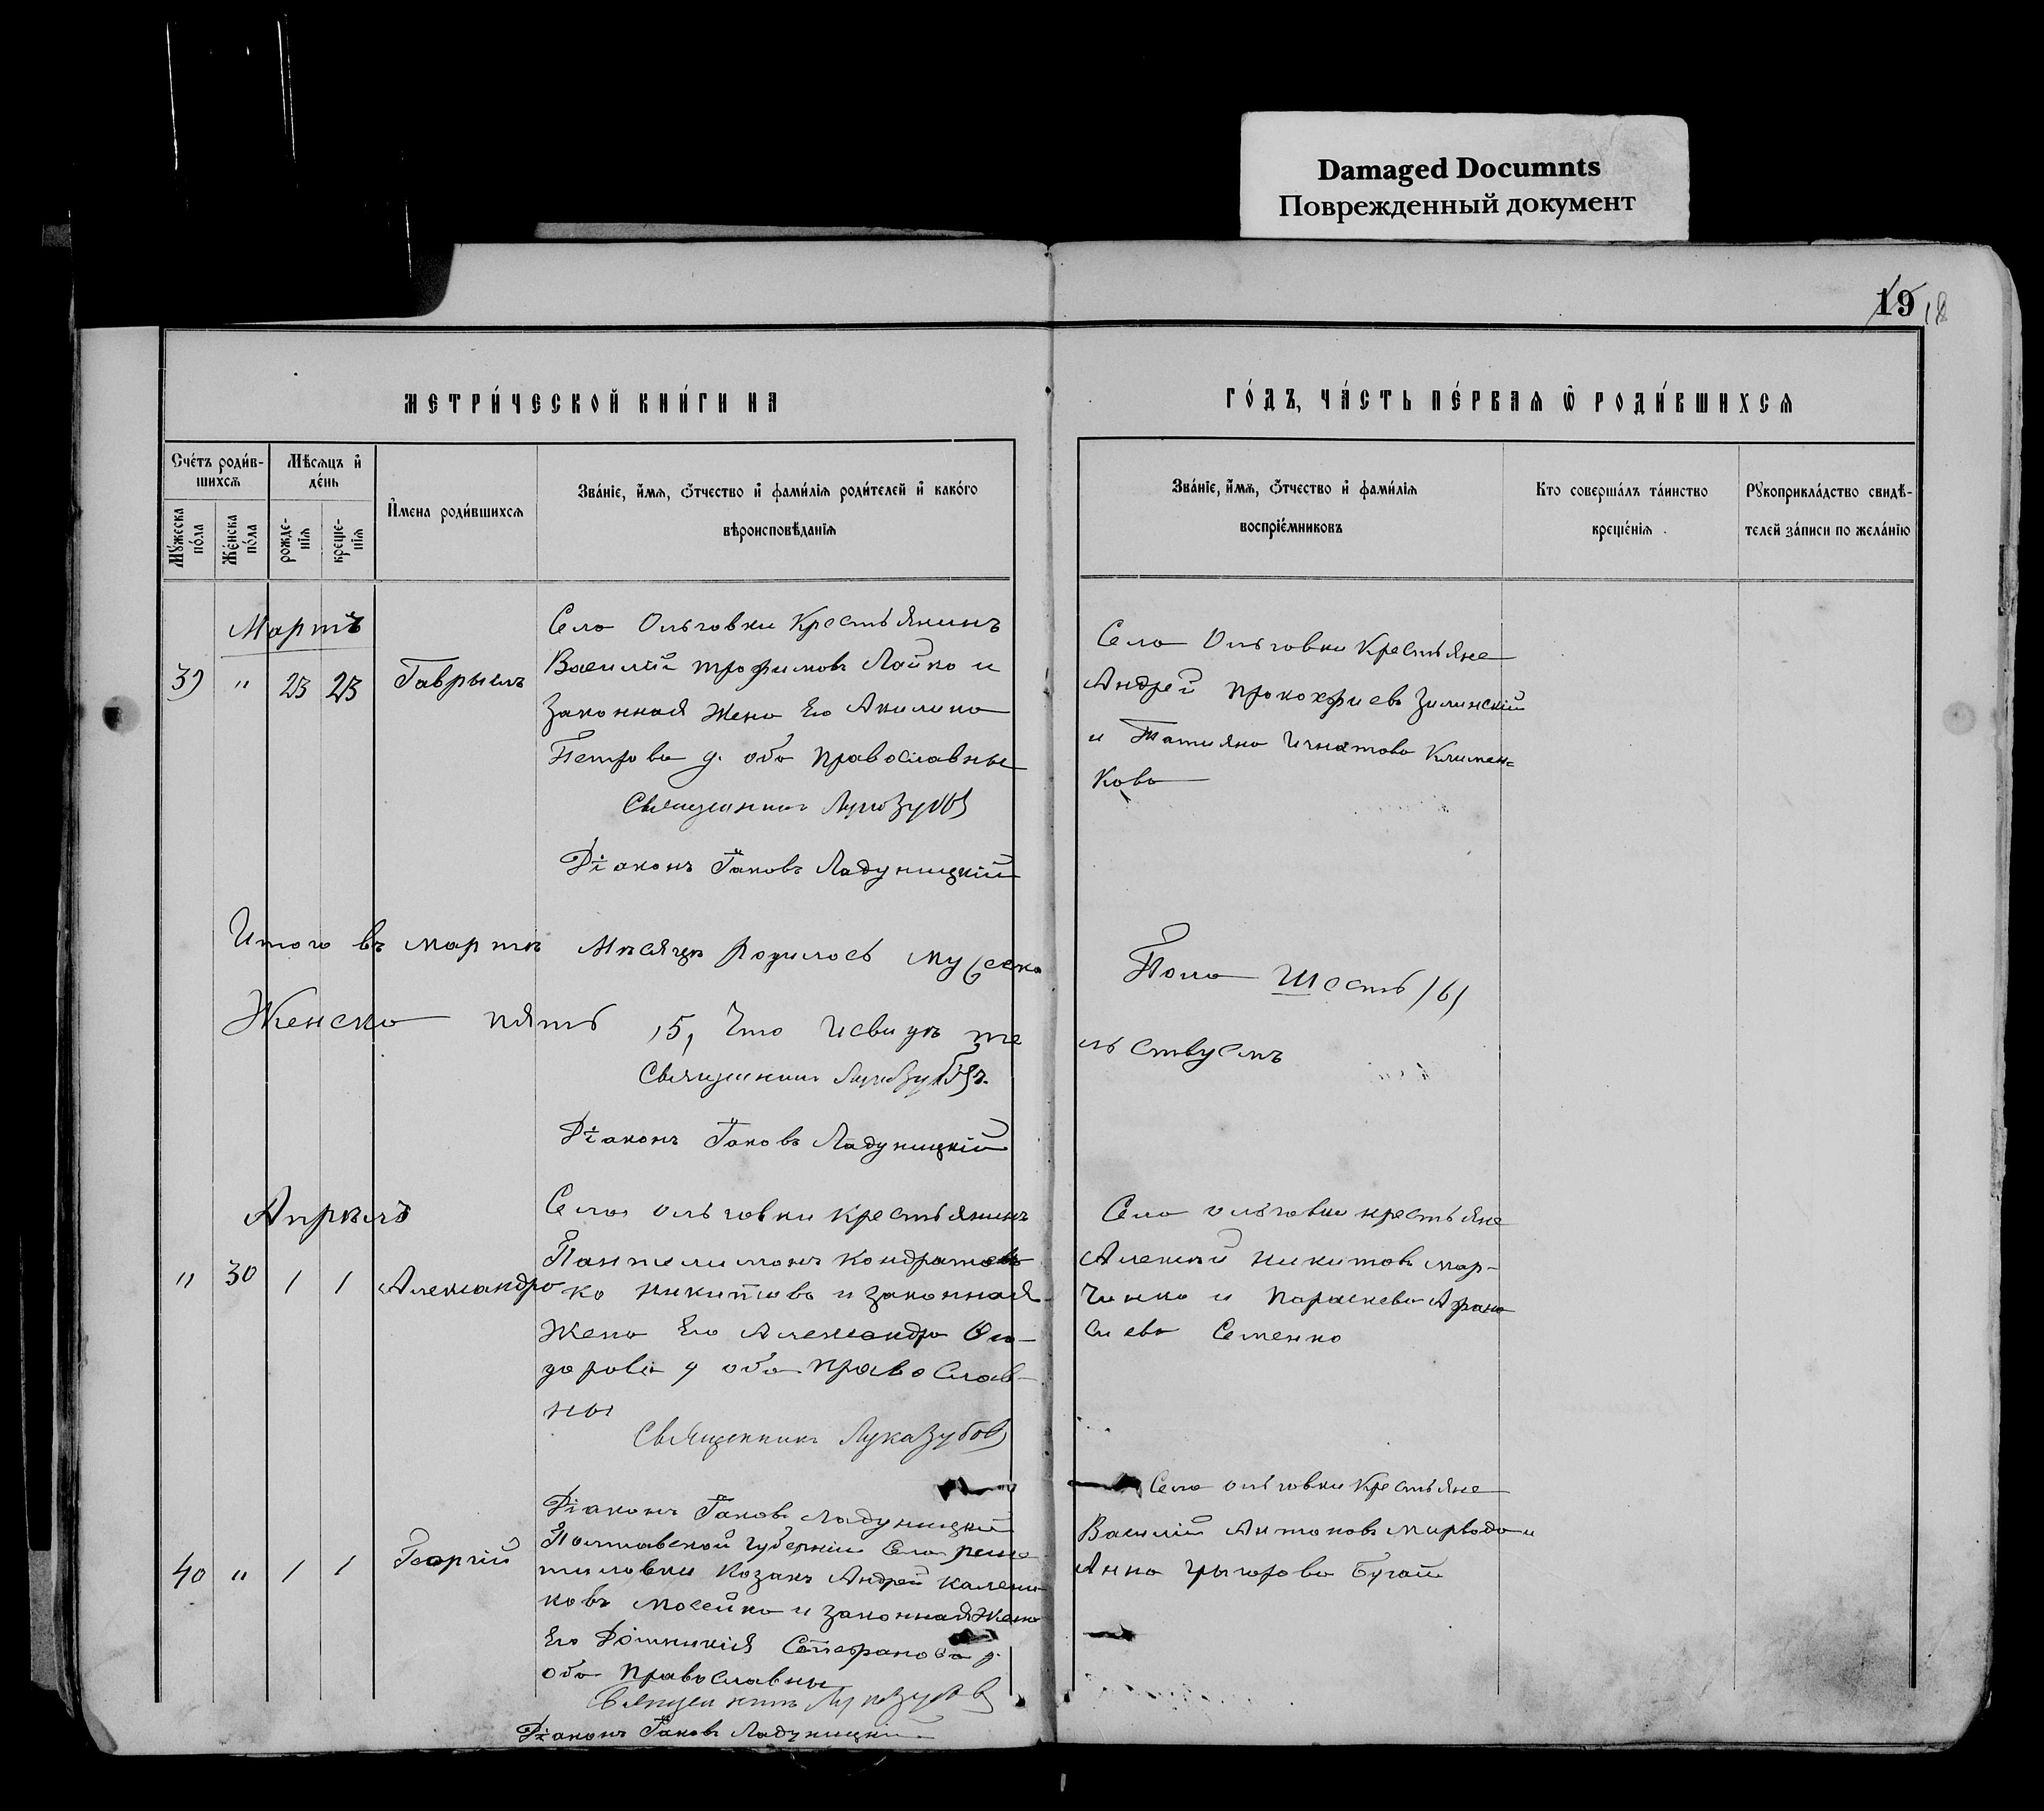 Damaged Documnts
Поврежденный документ
19 18
МЕТРИ́ЧЕСКОЙ КНИ́ГИ НА
ГО́ДЪ, ЧА́СТЬ ПЕ́РВАѦ Ѽ РОДИ́ВШИХСѦ
Сче́тъ роди́в-
шихсѧ
Мꙋ́жеска по́ла
Же́нска по́ла
Мѣ́сѧцъ и҆ де́нь
рожде-
нїѧ
креще-
нїѧ
И҆мена роди́вшихсѧ
Зва́нїе, и҆́мѧ, ѻ҆́тчество и҆ фами́лїѧ роди́телей и҆ како́го
вѣроисповѣ́данїѧ
Зва́нїе, и҆́мѧ, ѻ҆́тчество и҆ фами́лїѧ
воспрїе́мниковъ
Кто соверша́лъ та́инство
креще́нїѧ
Рꙋкоприкла́дство свидѣ́-
телей за́писи по жела́нїю
Мартъ
39 " 23 23 Гаврыелъ
Село Ольговки Крестьянинъ
Василій трофимовъ Лойко и
Законная Жена Его Акилина
Петрова д. оба православные
Священникъ Лука Зубовъ
Діаконъ Іаковъ Ладуницкій
Село Ольговки Крестьяне
Андрей Прокофиевъ Зилинскій
и Татияна Игнатова Климен=
кова
Итого въ мартѣ Мѣсяцѣ Родилось мужеска
Пола Шесть /6/
Женска пять /5/ Что и свидѣте
льствуемъ
Священникъ Лука Зубовъ
Діаконъ Іаковъ Ладуницкій
Апрѣль
" 30 1 1 Александра
Село Ольговки крестьянинъ
Пантелимонъ Кондратов
ко Никитовъ и законная
Жена Его Александра Ѳео-
дорова д оба Православ-
ны
Священникъ Лука Зубовъ
Діаконъ Іаковъ Ладуницкій
Село ольговки крестьяне
Алексій Никитовъ Мар-
ченко и Параскева Афана
сиева Семенко
40 " 1 1 Георгій
Полтавской Губерніи Села реше
тиловки Козакъ Андрей Калени
ковъ Мосейко и законная Жена
Его Домникія Стефанова д.
оба Православны
Священникъ Лука Зубовъ
Діаконъ Іаковъ Ладуницкій
Село ольговки Крестьяне
Василій Антоновъ и
Анна Грыгорова Бугай